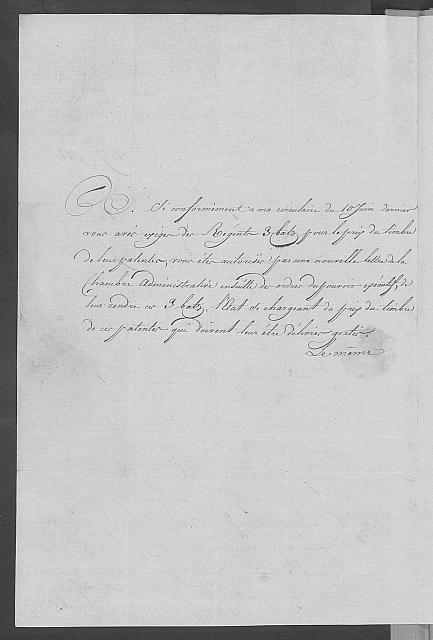 N. Si conformément a ma circulaire du 10 Juin dernier
vous avés exigés des Regents 3 batz pour le prix du timbre
de leurs patentes, vous êtes autorisés par une nouvelle lettre de la
Chambre Administrative ensuitte des ordres du pouvoir exécutif de
leur rendre ces 3 batz, l'Etat se chargeant du prix du timbre
de ces patentes qui doivent leur être délivrées gratis.
Le même